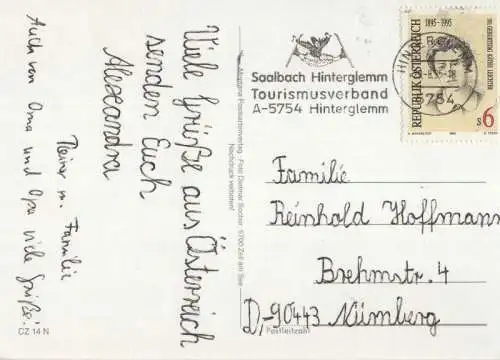 Viele Grüße aus Österreich
senden Euch
Alexandra
Rainer m. Familie
Auch von Oma und Opa viele Grüße.
CZ 14 N
Postkartenverlag · Foto Dietmar Sochor · 5700 Zell am See
Nachdruck verboten!
Saalbach Hinterglemm
Tourismusverband
A-5754 Hinterglemm
1895-1995
REPUBLIK ÖSTERREICH
S 6
5754
Familie
Reinhold Hoffmann
Brehmstr. 4
D,-90443 Nürnberg
Postleitzahl